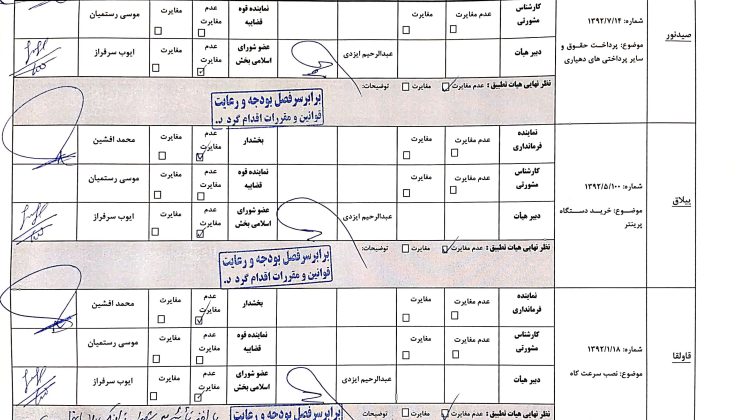 صیدنور
شماره: ۱۳۹۲/۷/۱۴
موضوع: پرداخت حقوق و سایر پرداختی های دهیاری
کارشناس مشورتی
عدم مغایرت
مغایرت
نماینده قوه قضاییه
عدم مغایرت
مغایرت
موسی رستمیان
دبیر هیات
عبدالرحیم ایزدی
عضو شورای اسلامی بخش
عدم مغایرت
مغایرت
ایوب سرفراز
نظر نهایی هیات تطبیق: عدم مغایرت مغایرت توضیحات:
برابر سرفصل بودجه و رعایت
قوانین و مقررات اقدام گردد.
ییلاق
شماره: ۱۳۹۲/۵/۱۰۰
موضوع: خرید دستگاه پرینتر
نماینده فرمانداری
عدم مغایرت
مغایرت
بخشدار
عدم مغایرت
مغایرت
محمد افشین
کارشناس مشورتی
عدم مغایرت
مغایرت
نماینده قوه قضاییه
عدم مغایرت
مغایرت
موسی رستمیان
دبیر هیات
عبدالرحیم ایزدی
عضو شورای اسلامی بخش
عدم مغایرت
مغایرت
ایوب سرفراز
نظر نهایی هیات تطبیق: عدم مغایرت مغایرت توضیحات:
برابر سرفصل بودجه و رعایت
قوانین و مقررات اقدام گردد.
قاولقا
شماره: ۱۳۹۲/۱/۱۸
موضوع: نصب سرعت کاه
نماینده فرمانداری
عدم مغایرت
مغایرت
بخشدار
عدم مغایرت
مغایرت
محمد افشین
کارشناس مشورتی
عدم مغایرت
مغایرت
نماینده قوه قضاییه
عدم مغایرت
مغایرت
موسی رستمیان
دبیر هیات
عبدالرحیم ایزدی
عضو شورای اسلامی بخش
عدم مغایرت
مغایرت
ایوب سرفراز
نظر نهایی هیات تطبیق: عدم مغایرت مغایرت توضیحات:
برابر سرفصل بودجه و رعایت